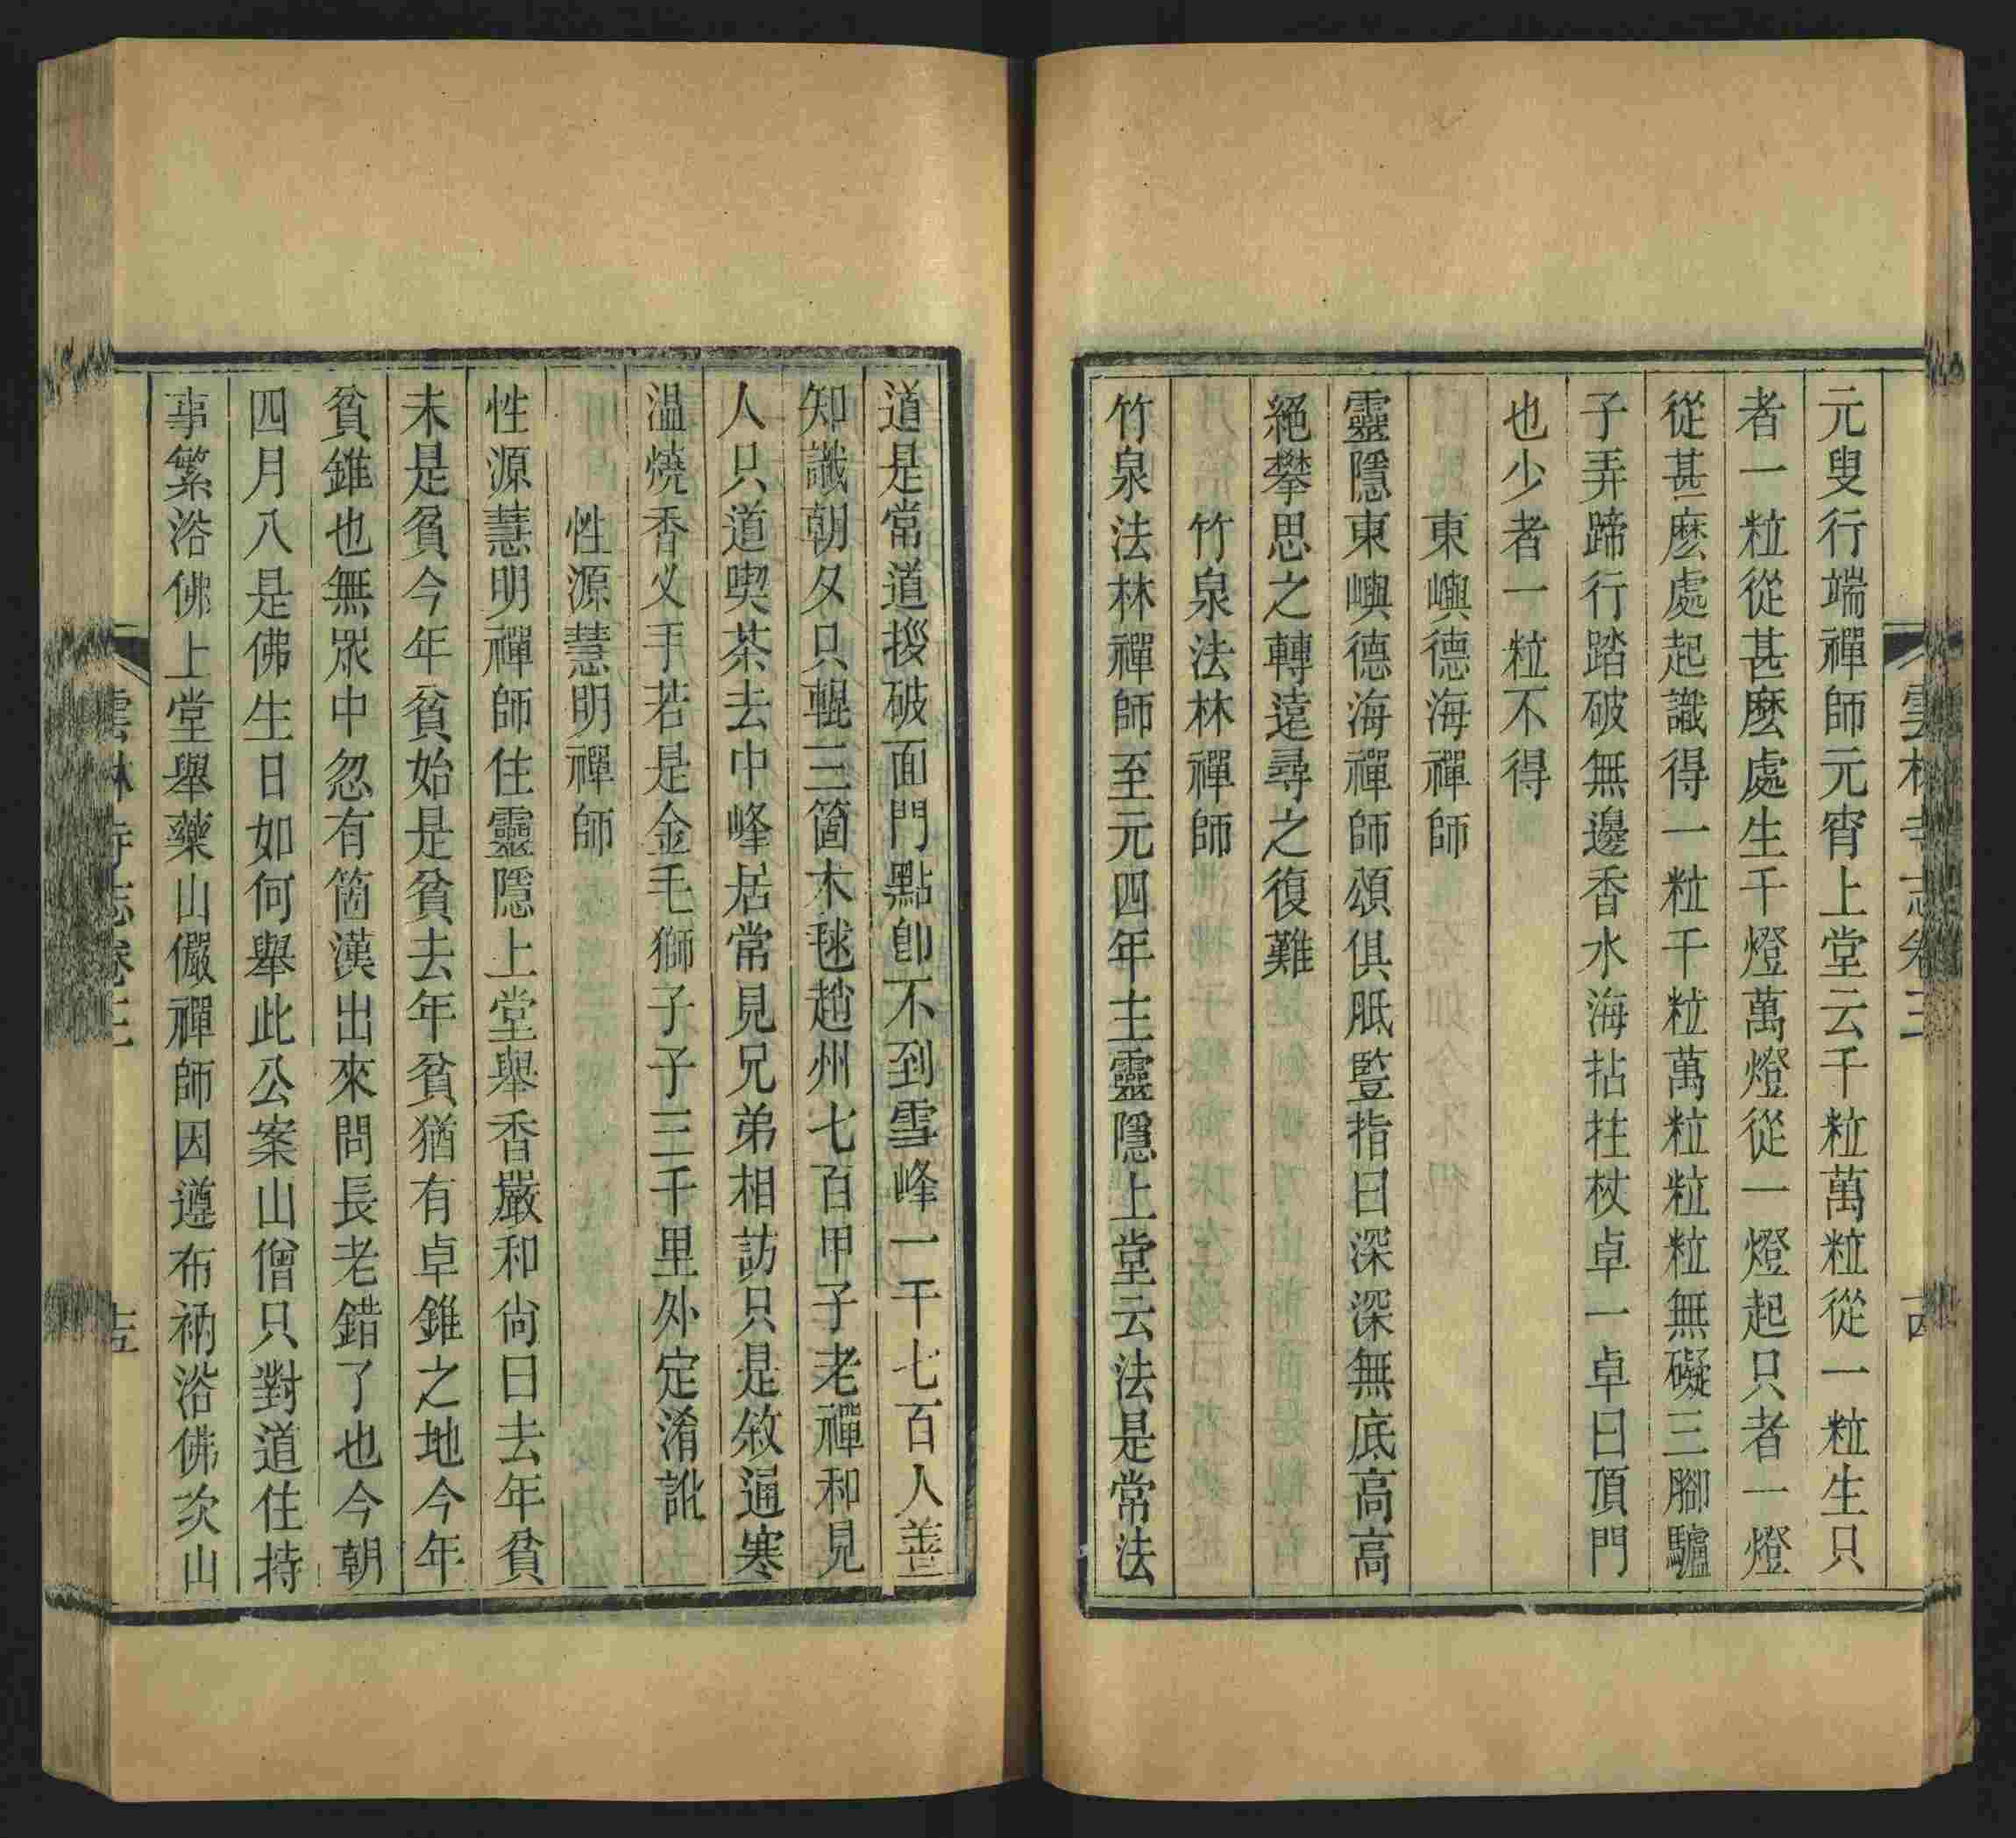 元叟行端禪師元宵上堂云千粒萬粒從一粒生只
者一粒從甚麽處生千燈萬燈從一燈起只者一燈
從甚麽處起識得一粒千粒萬粒粒粒無礙三腳驢
子弄蹄行踏破無邊香水海拈拄杖卓一卓曰頂門
也少者一粒不得
東嶼德海禪師
靈隱東嶼德海禪師頌俱胝豎指曰深深無底高高
絕攀思之轉遠尋之復難
竹泉法林禪師
竹泉法林禪師至元四年主靈隱上堂云法是常法
道是常道拶破面門點卽不到雪峰一千七百人善
知識朝夕只輥三箇木毬趙州七百甲子老禪和見
人只道喫茶去中峰居常見兄弟相訪只是敘通寒
温燒香义手若是金毛獅子子三千里外定淆訛
性源慧明禪師
性源慧明禪師住靈隱上堂舉香嚴和尙曰去年貧
未是貧今年貧始是貧去年貧猶有卓錐之地今年
貧錐也無眾中忽有箇漢出來問長老錯了也今朝
四月八是佛生日如何舉此公案山僧只對道住持
事繁浴佛上堂舉藥山儼禪師因遵布衲浴佛次山
雲林寺志卷三